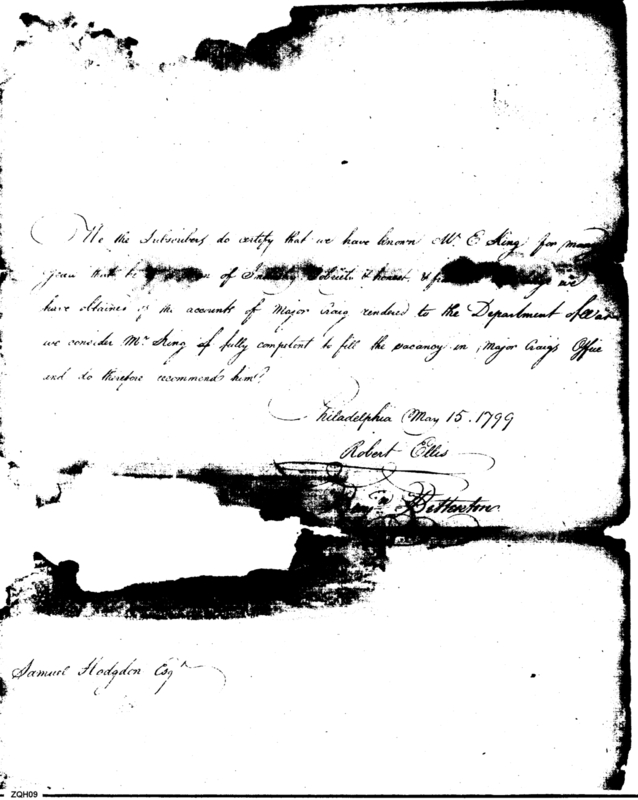 We the Subscribers do certify that we have known Mr. E King for many
years that he of Industry Sobriety & honest, & we
have obtained of the accounts of Major Craig rendered to the Department of War
we consider Mr. King as fully competent to fill the vacancy in Major Craigs Office
and do therefore recommend him.
Philadelphia May 15. 1799
Robert Ellis
Benjn. Betterton
Samuel Hodgdon Esqr
ZQH09